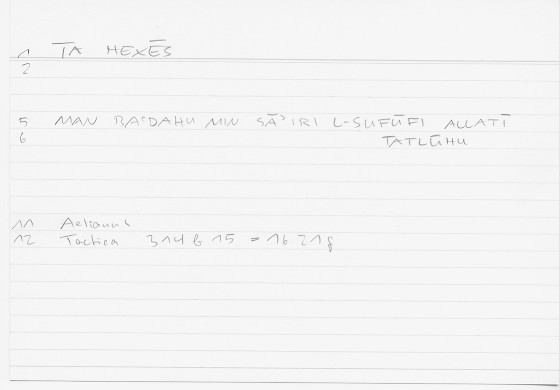 1 TA HEXĒS
2
5 MAN BAʿDAHU MIN SĀʾIRI L-SUFŪFI ALLATĪ
6 TATLŪHU
11 Aelianus
12 Tactica 314 b 15 = 16 21f